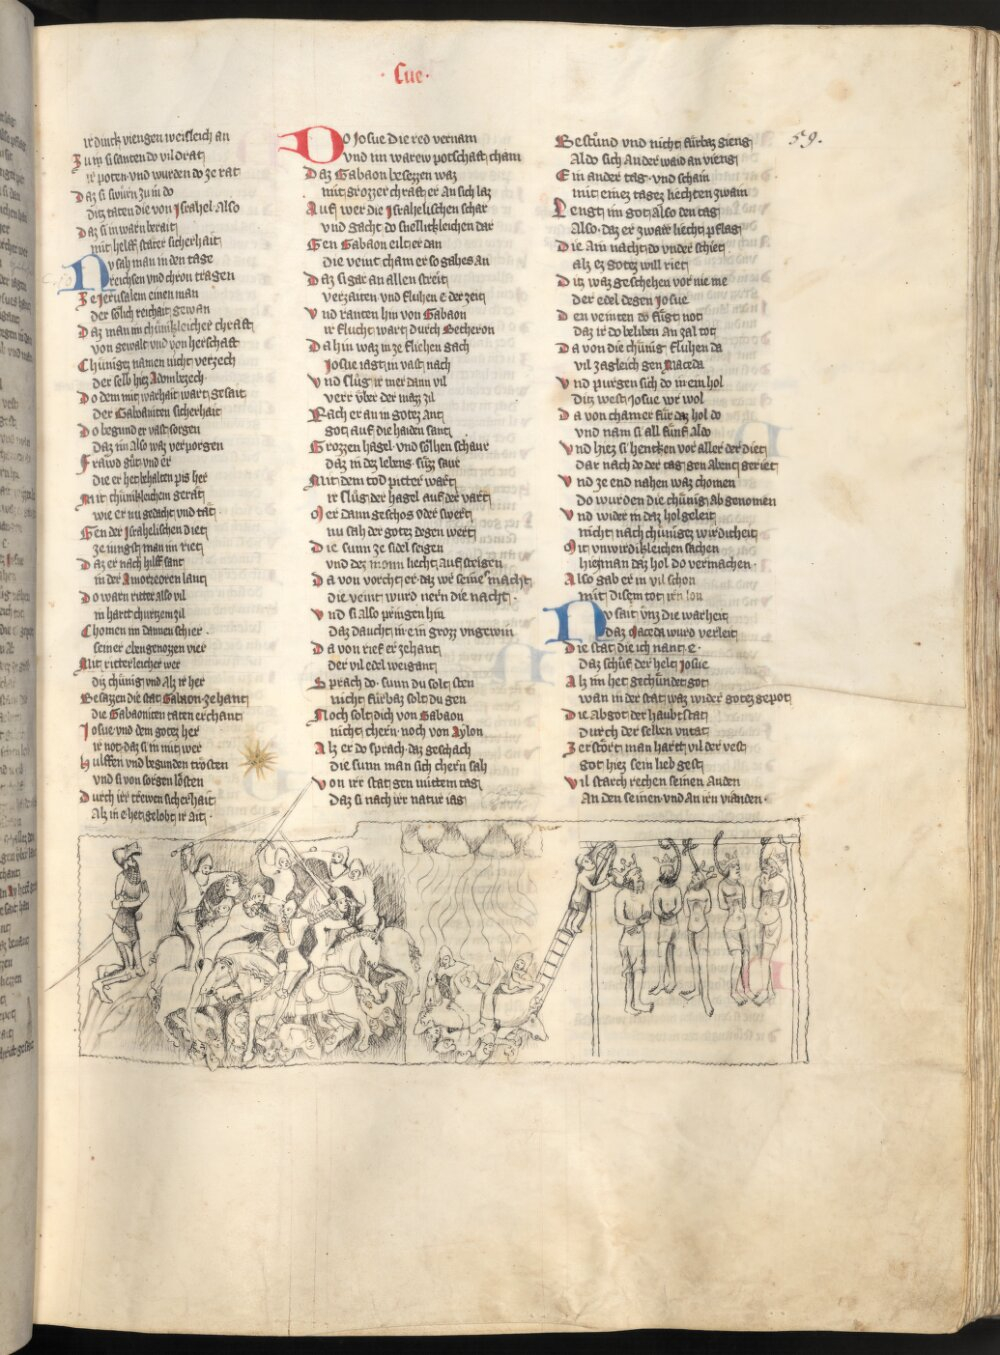 · Sue ·
59.
ir dinck viengen weisleich an
Zu im si santen do vil drat
ir poten vnd wurden do ze rat
Daz si swurn zu in do
Ditz taten die von Israhel also
Daz si in warn berait
mit helff starer sicherhait
Nv sah man in den tagen
reichsen vnd chron tragen
Ze Jerusalem einen man
der sölich reichait gewan
Daz man im chünikleicher chraft
von gewalt vnd von herschaft
Chüniges namen nicht verzech
der selb hiez Adonibezech
Do dem mit warhait wart gesait
der Gabaoniten sicherhait
Do begund er vast sorgen
daz im also waz verporgen
Frawd gut vnd er
die er het behalten pis her
Mit chünikleichem gerät
wie er nu gedacht vnd tät
Gen der Israhelischen diet
ze iungst man im riet
Daz er nach hilff sant
in der Amorreoren lant
Do warn ritter also vil
in hart churtzem zil
Chomen im dannen schier ·
seiner ebengenozzen vier
Mit ritterleicher wer
ditz chünig vnd alz ir her
Besazzen die stat Gabaon ze hant
die Gabaoniten taten erchant
Josue vnd dem gotez her
ir not daz si in mit wer
Hulffen vnd begunden trösten
vnd si von sorgen lösten
Durch irr trewen sicherhait
Alz in e het gelobt ir ait
Do Josue die red vernam
vnd im warew potschaft cham
Daz Gabaon besezzen waz
mit grozzer chraft er an sich laz
Auf wer die Israhelischen schar
vnd gacht do snellikleichen dar
Gen Gabaon eilt er dan
die veint cham er so gahes an
Daz si gar an allen streit
verzaiten vnd fluhen e der zeit
Vnd ranten hin von Gabaon
ir flucht wart durch Becheron
Dahin waz in ze fliehen gach
Josue iagt in vast nach
Vnd slüg ir mer dann vil
verr vber der mazz zil
Nach er an in gotez ant
got auf die haiden sant
Grozzen hagel vnd sölhen schaur
daz in dez lebens süzz saur
Mit dem tod pitter wart
ir slüg der hagel auf der vart
Mer dann geschos oder swert
nu sah der gotez degen wert
Die sunn ze sidel seigen
vnd dez monn liecht auf steigen
Da von vorcht er daz vor seiner macht
die veint wurd nern die nacht ·
Vnd si also pringen hin
daz daucht in ein grozz vngewin
Da von rief er zehant
der vil edel weigant
Sprach do · sunn du solt sten
nicht fürbaz solt du gen
Noch solt dich von Gabaon
nicht chern noch von Aylon
Alz er do sprach daz geschach
die sunn man sich chern sah
Von irr stat gen mittem tag
Daz si nach irr natur iag
Bestünd vnd nicht fürbaz gieng
Aldo sich ander waid an vieng
Ein ander tag · vnd schain
mit einez tagez liechten zwain
Lengt im got also den tag
Also daz er zware liecht pflag
Die an nacht do vnder schiet
alz ez gotez will riet
Ditz waz geschehen vor nie me
der edel degen Josue
Den veinten do fügt not
daz ir do beliben an zal tot
Da von die chünig fluhen da
vil zagleich gen Maceda
Vnd purgen sich do in ein hol
ditz west Josue wr wol
Da von cham er für daz hol do
vnd nam si all fünf aldo
Vnd hiez si hencken vor aller der diet
dar nach do der tag gen abent geriet
Vnd ze end nahen waz chomen
Do wurden die chünig ab genomen
Vnd wider in daz hol geleit
nicht nach chüniges wirdicheit
Mit vnwirdikleichen sachen
hiez man daz hol do vermachen ·
Also gab er in vil schon
mit disem tot irn lon
Nv sait vnz die warheit
daz Maceda wurd verleit
Die stat die ich nant e ·
daz schüf der helt Josue
Alz im het gechündet got
wan in der stat waz wider gotez gepot
Die abgot der haubtstat
Durch der selben vntat
Zerstört man hart vil der vest
got hiez sein lieb gest
Vil starch rechen seinen anden
An den seinen vnd an irn vianden ·